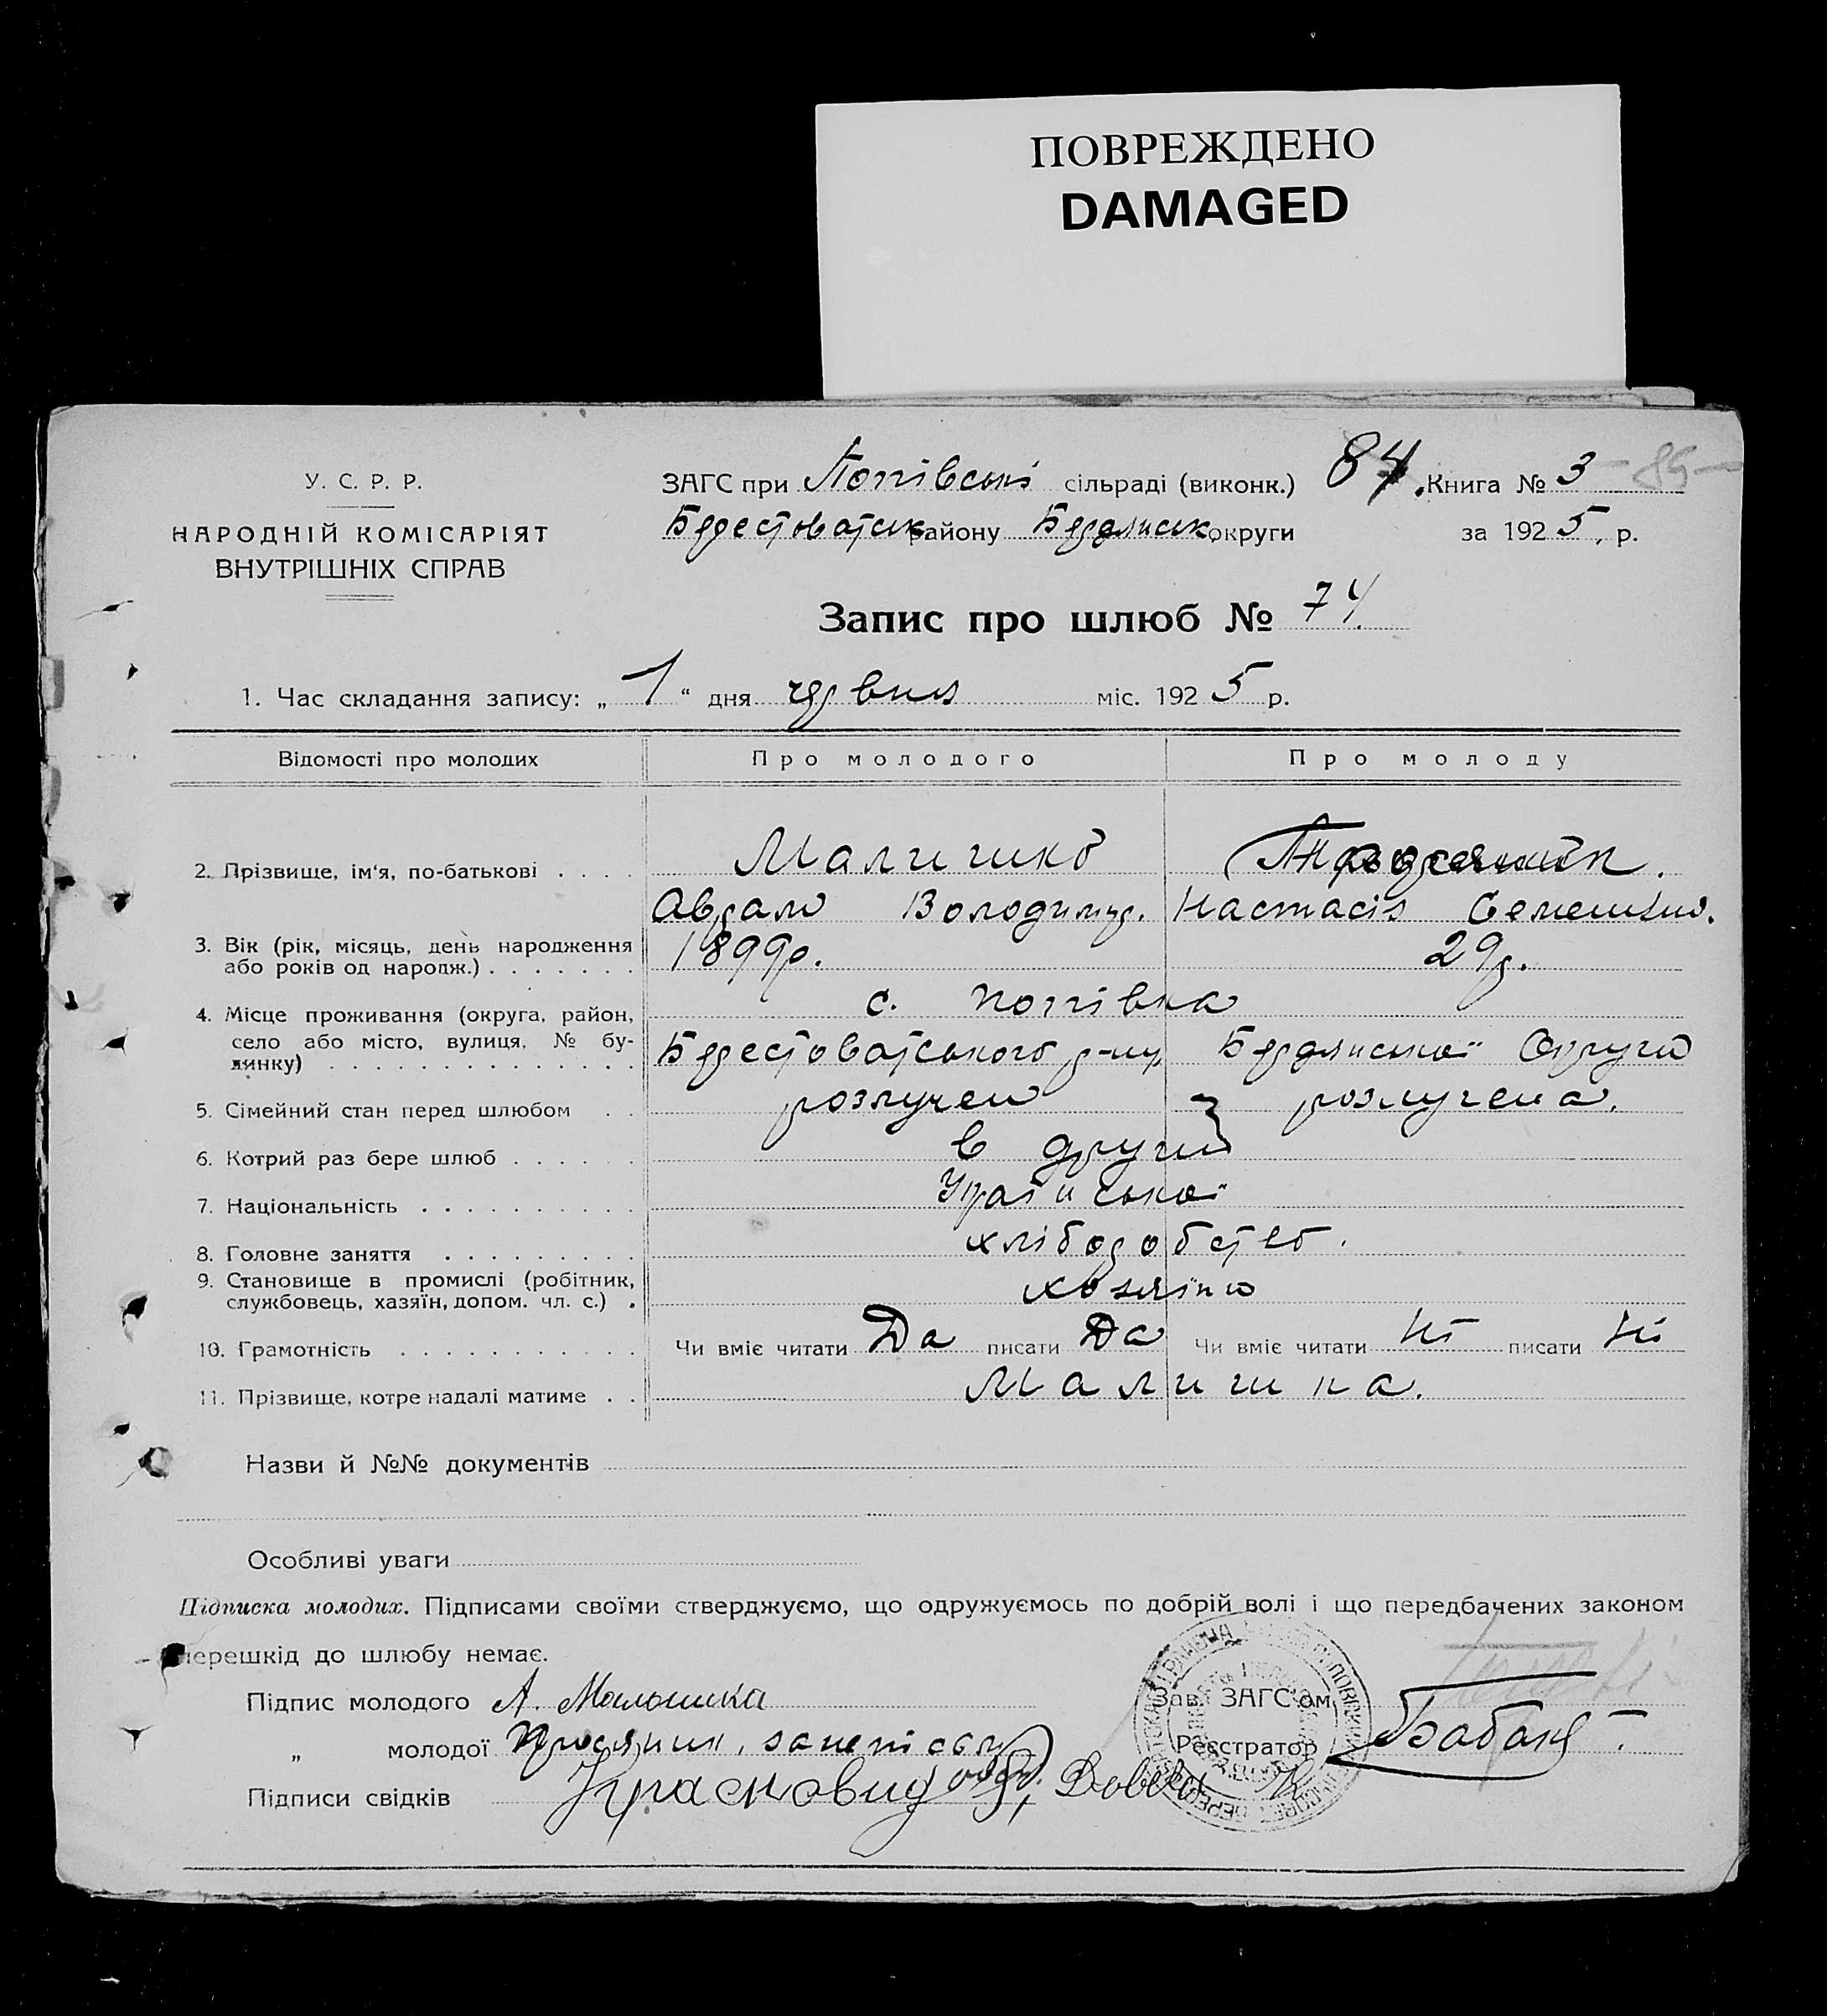 ПОВРЕЖДЕНО
DAMAGED
У. С. Р. Р.
НАРОДНІЙ КОМІСАРІЯТ
ВНУТРІШНІХ СПРАВ
ЗАГС при Попівські сільраді (виконк.) 84. Книга № 3 - 85 -
Берестоватськ району Бердянськ округи за 1925 р.
Запис про шлюб № 74.
1. Час складання запису: „ 1 “ дня червня міс. 1925 р.
Відомості про молодих Про молодого Про молоду
2. Прізвище, ім'я, по-батькові . . . .
Аврам Володимир. Настасія Семенівн.
3. Вік (рік, місяць, день народження
або років од народж.) . . . . . . . 1899р. 29р.
4. Місце проживання (округа, район, с. Попівка
село або місто, вулиця, № бу- Берестоватського р-ну Бердянської Округи
динку) . . . . . . . . . . . . . .
5. Сімейний стан перед шлюбом . . розлучен розлучена.
6. Котрий раз бере шлюб . . . . . . в други
7. Національність . . . . . . . . . . Украінської
8. Головне заняття . . . . . . . . . хліборобство.
9. Становище в промислі (робітник,
службовець, хазяїн, допом. чл. с.) . хозяїн
10. Грамотність . . . . . . . . . . . Чи вміє читати Да писати Да Чи вміє читати Ні писати Ні
11. Прізвище, котре надалі матиме . . Малишка.
Назви й №№ документів
Особливі уваги
Підписка молодих. Підписами своїми стверджуємо, що одружуємось по добрій волі і що передбачених законом
перешкід до шлюбу немає.
Підпис молодого А. Малышка Зав. ЗАГС'ом
„ молодої Реєстратор
Підписи свідків